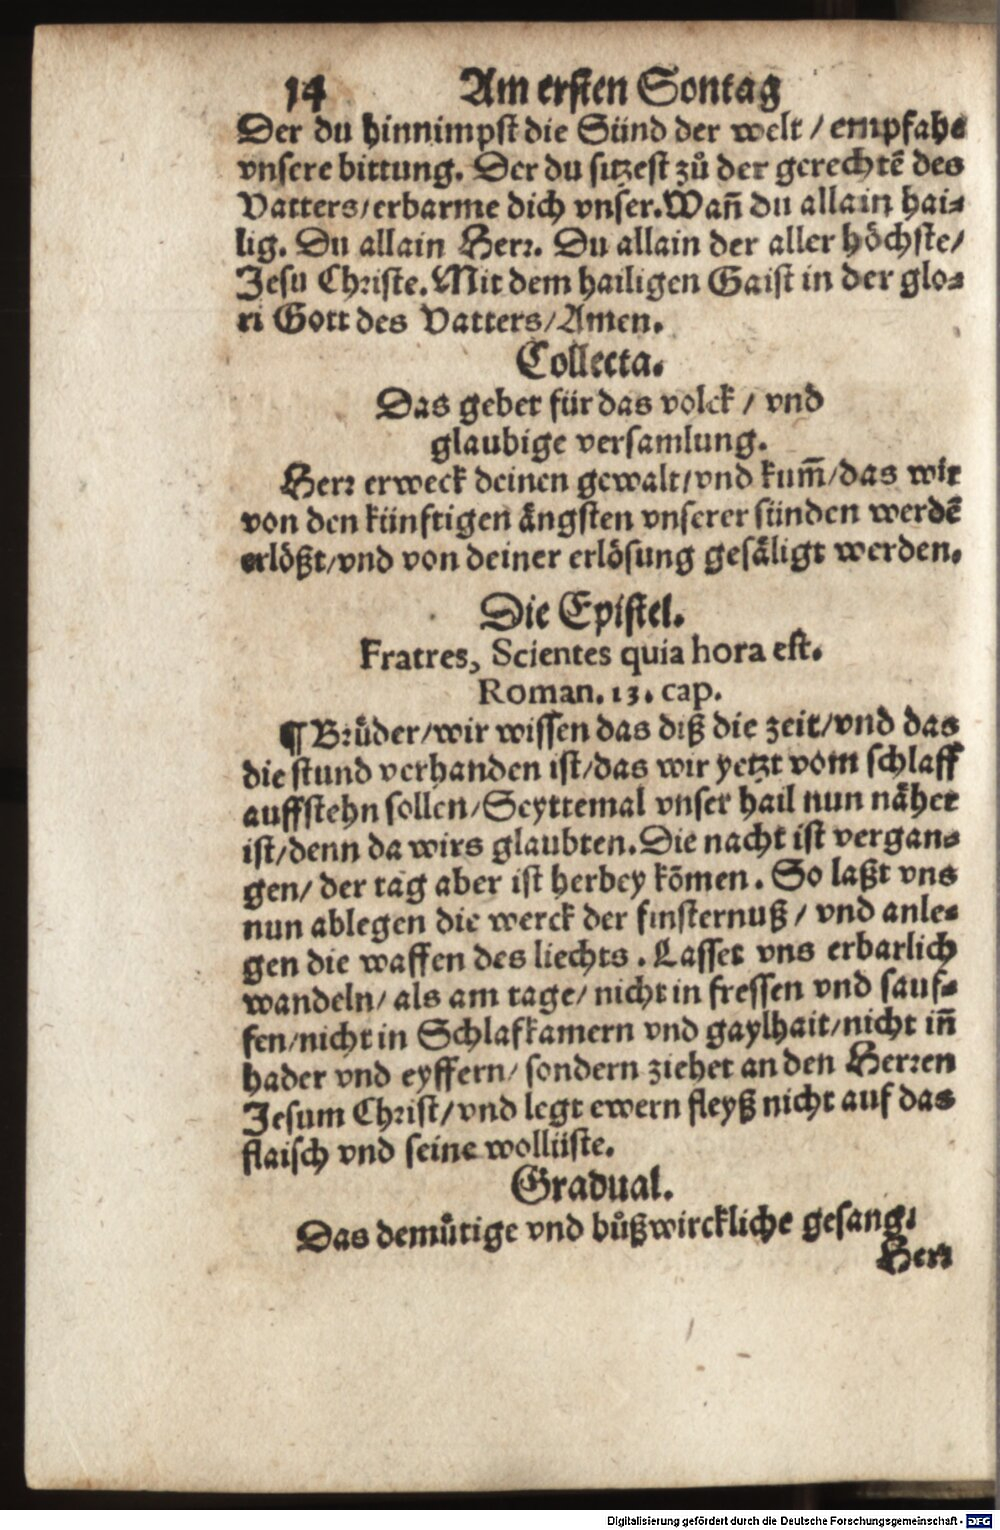 14 Am ersten Sontag
Der du hinnimpst die Sünd der welt / empfahe
vnsere bittung. Der du sitzest zů der gerechtē des
Vatters/erbarme dich vnser. Wañ du allain hai⸗
lig. Du allain Herr. Du allain der aller höchste/
Jesu Christe. Mit dem hailigen Gaist in der glo⸗
ri Gott des Vatters/Amen.
Collecta.
Das gebet für das volck / vnd
glaubige versamlung.
Herr erweck deinen gewalt/vnd kum̄/das wir
von den künftigen ängsten vnserer sünden werdē
erlößt/vnd von deiner erlösung gesäligt werden.
Die Epistel.
Fratres, Scientes quia hora est.
Roman. 13. cap.
¶ Brüder/wir wissen das diß die zeit/vnd das
die stund verhanden ist/das wir yetzt vom schlaff
auffstehn sollen/Seyttemal vnser hail nun näher
ist/denn da wirs glaubten. Die nacht ist vergan⸗
gen/ der tag aber ist herbey kōmen. So laßt vns
nun ablegen die werck der finsternuß / vnd anle⸗
gen die waffen des liechts. Lasset vns erbarlich
wandeln/ als am tage/ nicht in fressen vnd sauf⸗
fen/nicht in Schlafkamern vnd gaylhait/nicht iñ
hader vnd eyffern/ sondern ziehet an den Herren
Jesum Christ/vnd legt ewern fleyß nicht auf das
flaisch vnd seine wollüste.
Gradual.
Das demůtige vnd bůßwirckliche gesang.
Herr
Digitalisierung gefördert durch die Deutsche Forschungsgemeinschaft - DFG